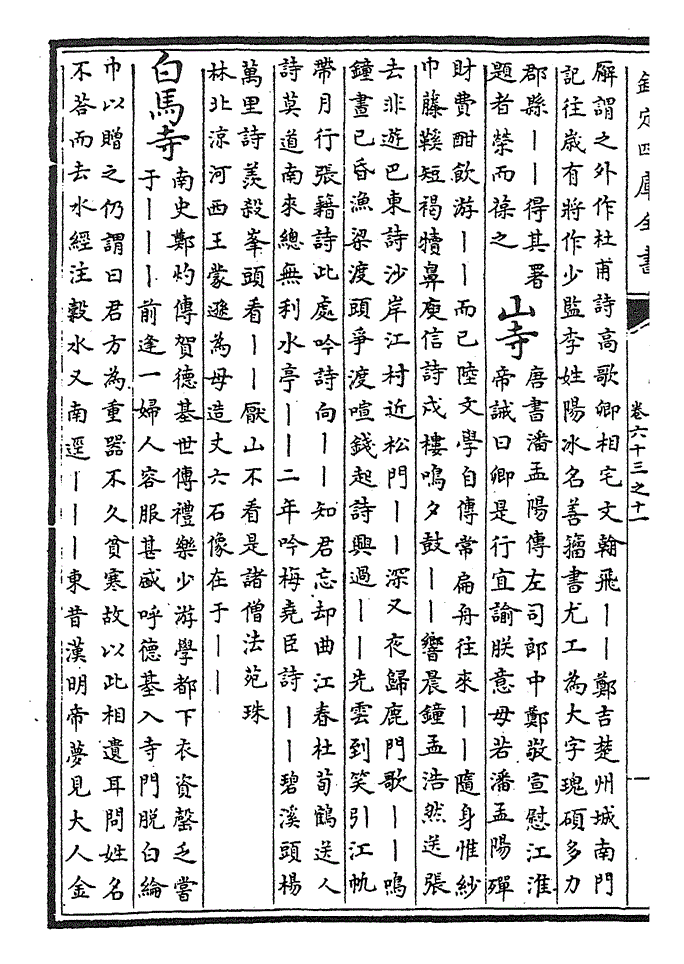 欽定四庫全書
卷六十三之十一
廨謂之外作杜甫詩高歌卿相宅文翰飛丨丨鄭吉楚州城南門
記往歲有將作少監李姓陽冰名善籀書尤工為大字瑰碩多力
郡縣丨丨得其署
題者榮而葆之
山寺
唐書潘孟陽傳左司郎中鄭敬宣慰江淮
帝誡曰卿是行宜諭朕意毋若潘孟陽殫
財費酣飲游丨丨而已陸文學自傳常扁舟往來丨丨隨身惟紗
巾藤鞵短褐犢鼻庾信詩戍樓鳴夕鼓丨丨響晨鐘孟浩然送張
去非遊巴東詩沙岸江村近松門丨丨深又夜歸鹿門歌丨丨鳴
鐘晝已昏漁梁渡頭爭渡喧錢起詩興過丨丨先雲到笑引江帆
帶月行張籍詩此處吟詩向丨丨知君忘却曲江春杜荀鶴送人
詩莫道南來總無利水亭丨丨二年吟梅堯臣詩丨丨碧溪頭楊
萬里詩羨殺峯頭看丨丨厭山不看是諸僧法苑珠
林北涼河西王蒙遜為母造丈六石像在于丨丨
白馬寺
南史鄭灼傳賀德基世傳禮樂少游學都下衣資罄乏嘗
于丨丨丨前逢一婦人容服甚盛呼德基入寺門脫白綸
巾以贈之仍謂曰君方為重器不久貧寒故以此相遺耳問姓名
不荅而去水經注穀水又南逕丨丨丨東昔漢明帝夢見大人金